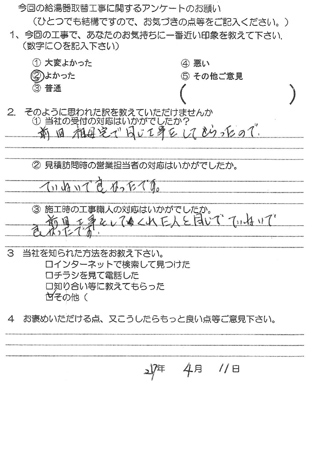 今回の給湯器取替工事に関するアンケートのお願い
(ひとつでも結構ですので、お気づきの点等をご記入ください。)
1、今回の工事で、あなたのお気持ちに一番近い印象を教えて下さい。
(数字に○を記入下さい)
① 大変よかった ④ 悪い
② よかった ⑤ その他ご意見
③ 普通 ( )
2. そのように思われた訳を教えていただけませんか
① 当社の受付の対応はいかがでしたか?
前回 祖母宅で同じ工事をしてもらったので、
② 見積訪問時の営業担当者の対応はいかがでしたか。
ていねいで良かったです。
③ 施工時の工事職人の対応はいかがでしたか。
前回工事をしてくれた人と同じで ていねいで
良かったです。
3 当社を知られた方法をお教え下さい。
□インターネットで検索して見つけた
□チラシを見て電話した
□知り合い等に教えてもらった
☑その他 (
4 お褒めいただける点、又こうしたらもっと良い点等ご意見下さい。
27年 4月 11日